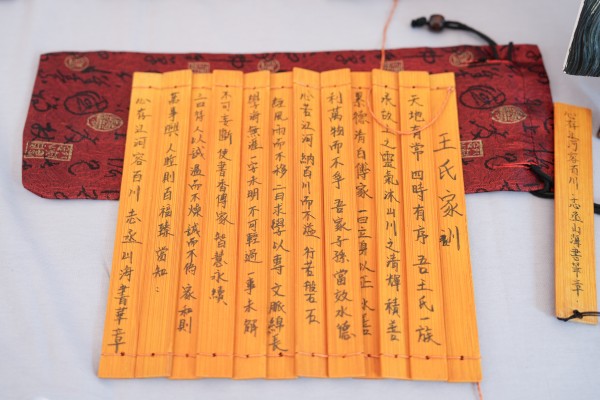 王氏家訓
天地有常 四時有序 吾王氏一族
承故土之靈氣沐山川之清輝 積善
累德 清白傳家 一曰立身以正 水善
利萬物而不爭 吾家子孫 當效水德
心若江河 納百川而不盈 行若磐石
經風雨而不移 二曰求學以專 文脈綿長
學海無涯 一字未明不可輕過 一事未解
不可妄斷 使書香傳家 智慧永續
三曰待人以誠 溫而不燥 誠而不偽 家和則
萬事興 人睦則百福臻 當知：
心存江河容百川 志丞山海書華章
心存江河容百川 志丞山海書華章